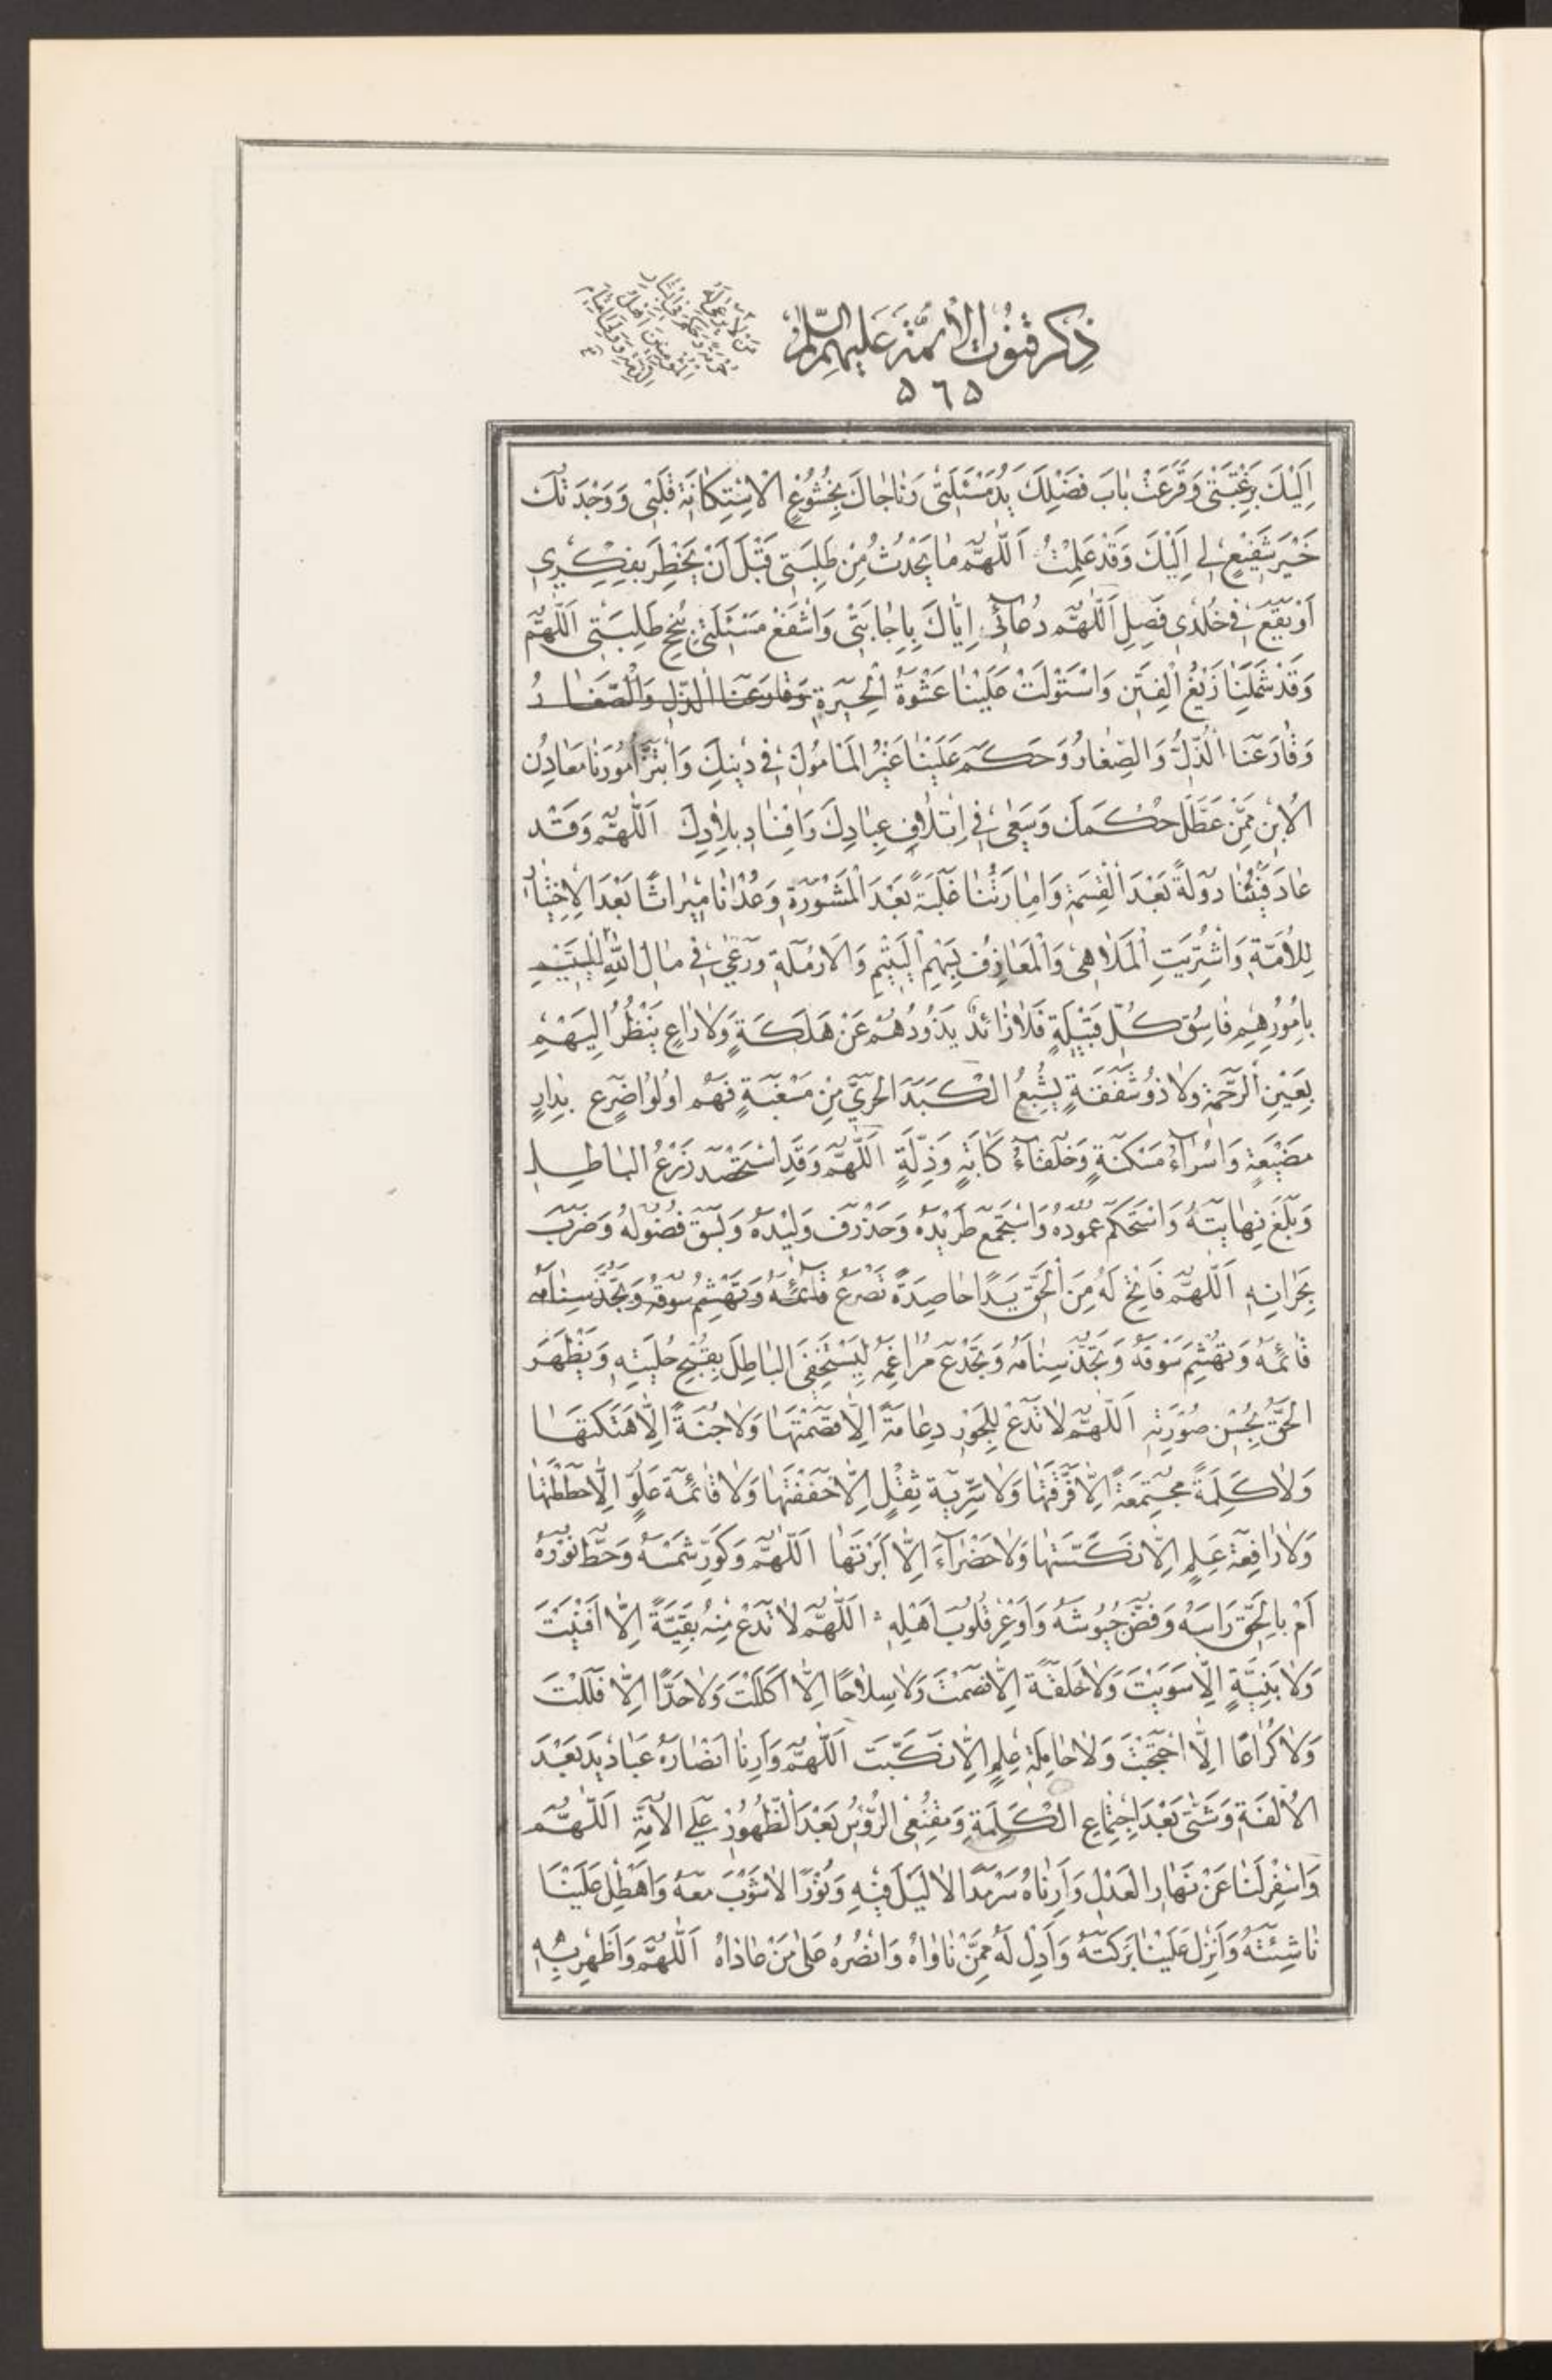 ذِكر قنوت الأئمّة عليهم السّلام
٥٦٥
اِلَيْكَ بِرَغْبَتى وَقَرَعَتْ بابَ فَضْلِكَ يَدُ مَسْئَلَتى وَناجاكَ بِخُشُوعِ الْاِسْتِكانَةِ قَلْبى وَوَجَدْتُكَ
خَيْرَ شَفيعٍ لى اِلَيْكَ وَقَدْ عَلِمْتَ اَللّهُمَّ ما يَحْدُثُ مِنْ طَلِبَتى قَبْلَ اَنْ يَخْطِرَ بِفِكْرى
اَوْ يَقَعَ فى خُلْدى فَصِلِ اَللّهُمَّ دُعائى اِيّاكَ بِاِجابَتى وَاشْفَعْ مَسْئَلَتى بِنُجْحِ طَلِبَتى اَللّهُمَّ
وَقَدْ شَمَلَنا زَيْغُ الْفِتَنِ وَاسْتَوْلَتْ عَلَيْنا غَشْوَةُ الْحَيْرَةِ وَقارَعَنا الذُّلُّ وَالصَّغارُ
وَقارَعَنا الذُّلُّ وَالصَّغارُ وَحَكَمَ عَلَيْنا غَيْرُ الْمَأمُونينَ فى دينِكَ وَابْتَزَّ اُمُورَنا مَعادِنُ
الْاُبَنِ مِمَّنْ عَطَّلَ حُكْمَكَ وَسَعى فى اِتْلافِ عِبادِكَ وَاِفْسادِ بِلادِكَ اَللّهُمَّ وَقَدْ
عادَ فَيْئُنا دَوْلَةً بَعْدَ الْقِسْمَةِ وَاِمارَتُنا غَلَبَةً بَعْدَ الْمَشْوَرَةِ وَعُدْنا ميراثًا بَعْدَ الْاِخْتِيارِ
لِلْاُمَّةِ وَاشْتُرِيَتِ الْمَلاهى وَالْمَعازِفُ بِسَهْمِ الْيَتيمِ وَالْاَرْمَلَةِ وَرَعى فى مالِ اللهِ
بِاُمُورِهِمْ فاسِقُ كُلِّ قَبيلَةٍ فَلا ذائِدٌ يَذُودُهُمْ عَنْ هَلَكَةٍ وَلا راعٍ يَنْظُرُ اِلَيْهِمْ
بِعَيْنِ الرَّحْمَةِ وَلا ذُو شَفَقَةٍ يُشْبِعُ الْكَبِدَ الْحَرّى مِنْ مَسْغَبَةٍ فَهُمْ اُولُوا ضَرَعٍ بِدارِ
مَضْيَعَةٍ وَاُسَراءُ مَسْكَنَةٍ وَحُلَفاءُ كَابَةٍ وَذِلَّةٍ اَللّهُمَّ وَقَدِ اسْتَحْصَدَ زَرْعُ الْباطِلِ
وَبَلَغَ نِهايَتَهُ وَاسْتَحْكَمَ عَمُودُهُ وَاسْتَجْمَعَ طَريدُهُ وَخَذْرَفَ وَليدُهُ وَبَسَقَ فُضُولُهُ وَضَرَبَ
بِجِرانِهِ اَللّهُمَّ فَاَتِحْ لَهُ مِنَ الْحَقِّ يَدًا حاصِدَةً تَصْرَعُ قائِمَهُ وَتَهْشِمُ سُوقَهُ وَتَجُذُّ سِنامَهُ
قائِمَهُ وَتَهْشِمُ سُوقَهُ وَتَجُذُّ سِنامَهُ وَتَجْدَعُ مَراغِمَهُ لِيَسْتَخْفِىَ الْباطِلُ بِقُبْحِ حِلْيَتِهِ وَيَظْهَرَ
الْحَقُّ بِحُسْنِ صُورَتِهِ اَللّهُمَّ لا تَدَعْ لِلْجَوْرِ دِعامَةً اِلّا قَصَمْتَها وَلا جُنَّةً اِلّا هَتَكْتَها
وَلا كَلِمَةً مُجْتَمِعَةً اِلّا فَرَّقْتَها وَلا سَرِيَّةَ ثِقْلٍ اِلّا خَفَّفْتَها وَلا قائِمَةَ عُلُوٍّ اِلّا حَطَطْتَها
وَلا رافِعَةَ عَلَمٍ اِلّا نَكَّسْتَها وَلا خَضْراءَ اِلّا اَبَرْتَها اَللّهُمَّ وَكَوِّرْ شَمْسَهُ وَحُطَّ نُورَهُ
اَمَّ بِالْحَقِّ رَاسَهُ وَفُضَّ جُيُوشَهُ وَاَوْغِرْ قُلُوبَ اَهْلِهِ اَللّهُمَّ لا تَدَعْ مِنْهُ بَقِيَّةً اِلّا اَفْنَيْتَ
وَلا بَنِيَّةً اِلّا سَوَّيْتَ وَلا حَلْقَةً اِلّا فَصَمْتَ وَلا سِلاحًا اِلّا اَكْلَلْتَ وَلا حَدًّا اِلّا فَلَلْتَ
وَلا كُراعًا اِلّا اجْتَحْتَ وَلا حامِلَةَ عَلَمٍ اِلّا نَكَّبْتَ اَللّهُمَّ وَاَرِنا اَنْصارَهُ عَباديدَ بَعْدَ
الْاُلْفَةِ وَشَتّى بَعْدَ اجْتِماعِ الْكَلِمَةِ وَمُقْنِعِى الرُّؤُسِ بَعْدَ الظُّهُورِ عَلَى الْاُمَّةِ اَللّهُمَّ
وَاَسْفِرْ لَنا عَنْ نَهارِ الْعَدْلِ وَاَرِناهُ سَرْمَدًا لا لَيْلَ فيهِ وَنُورًا لا شَوْبَ مَعَهُ وَاَهْطِلْ عَلَيْنا
ناشِئَتَهُ وَاَنْزِلْ عَلَيْنا بَرَكَتَهُ وَاَدِلْ لَهُ مِمَّنْ ناواهُ وَانْصُرْهُ عَلى مَنْ عاداهُ اَللّهُمَّ وَاَظْهِرْ بِهِ